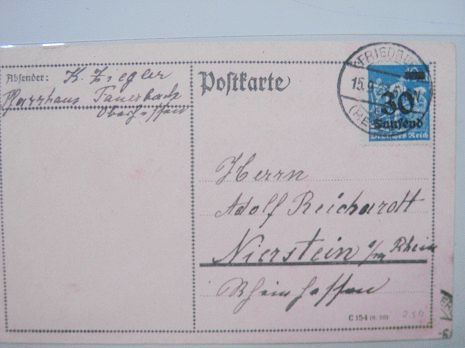 Absender: K. Ziegler
Pfarrhaus Fauerbach
Oberhessen
Postkarte
FRIEDB
15.
30
Tausend
Deutsches Reich
Herrn
Adolf Reichardt
Nierstein a/m Rhein
Rheinhessen
C 154